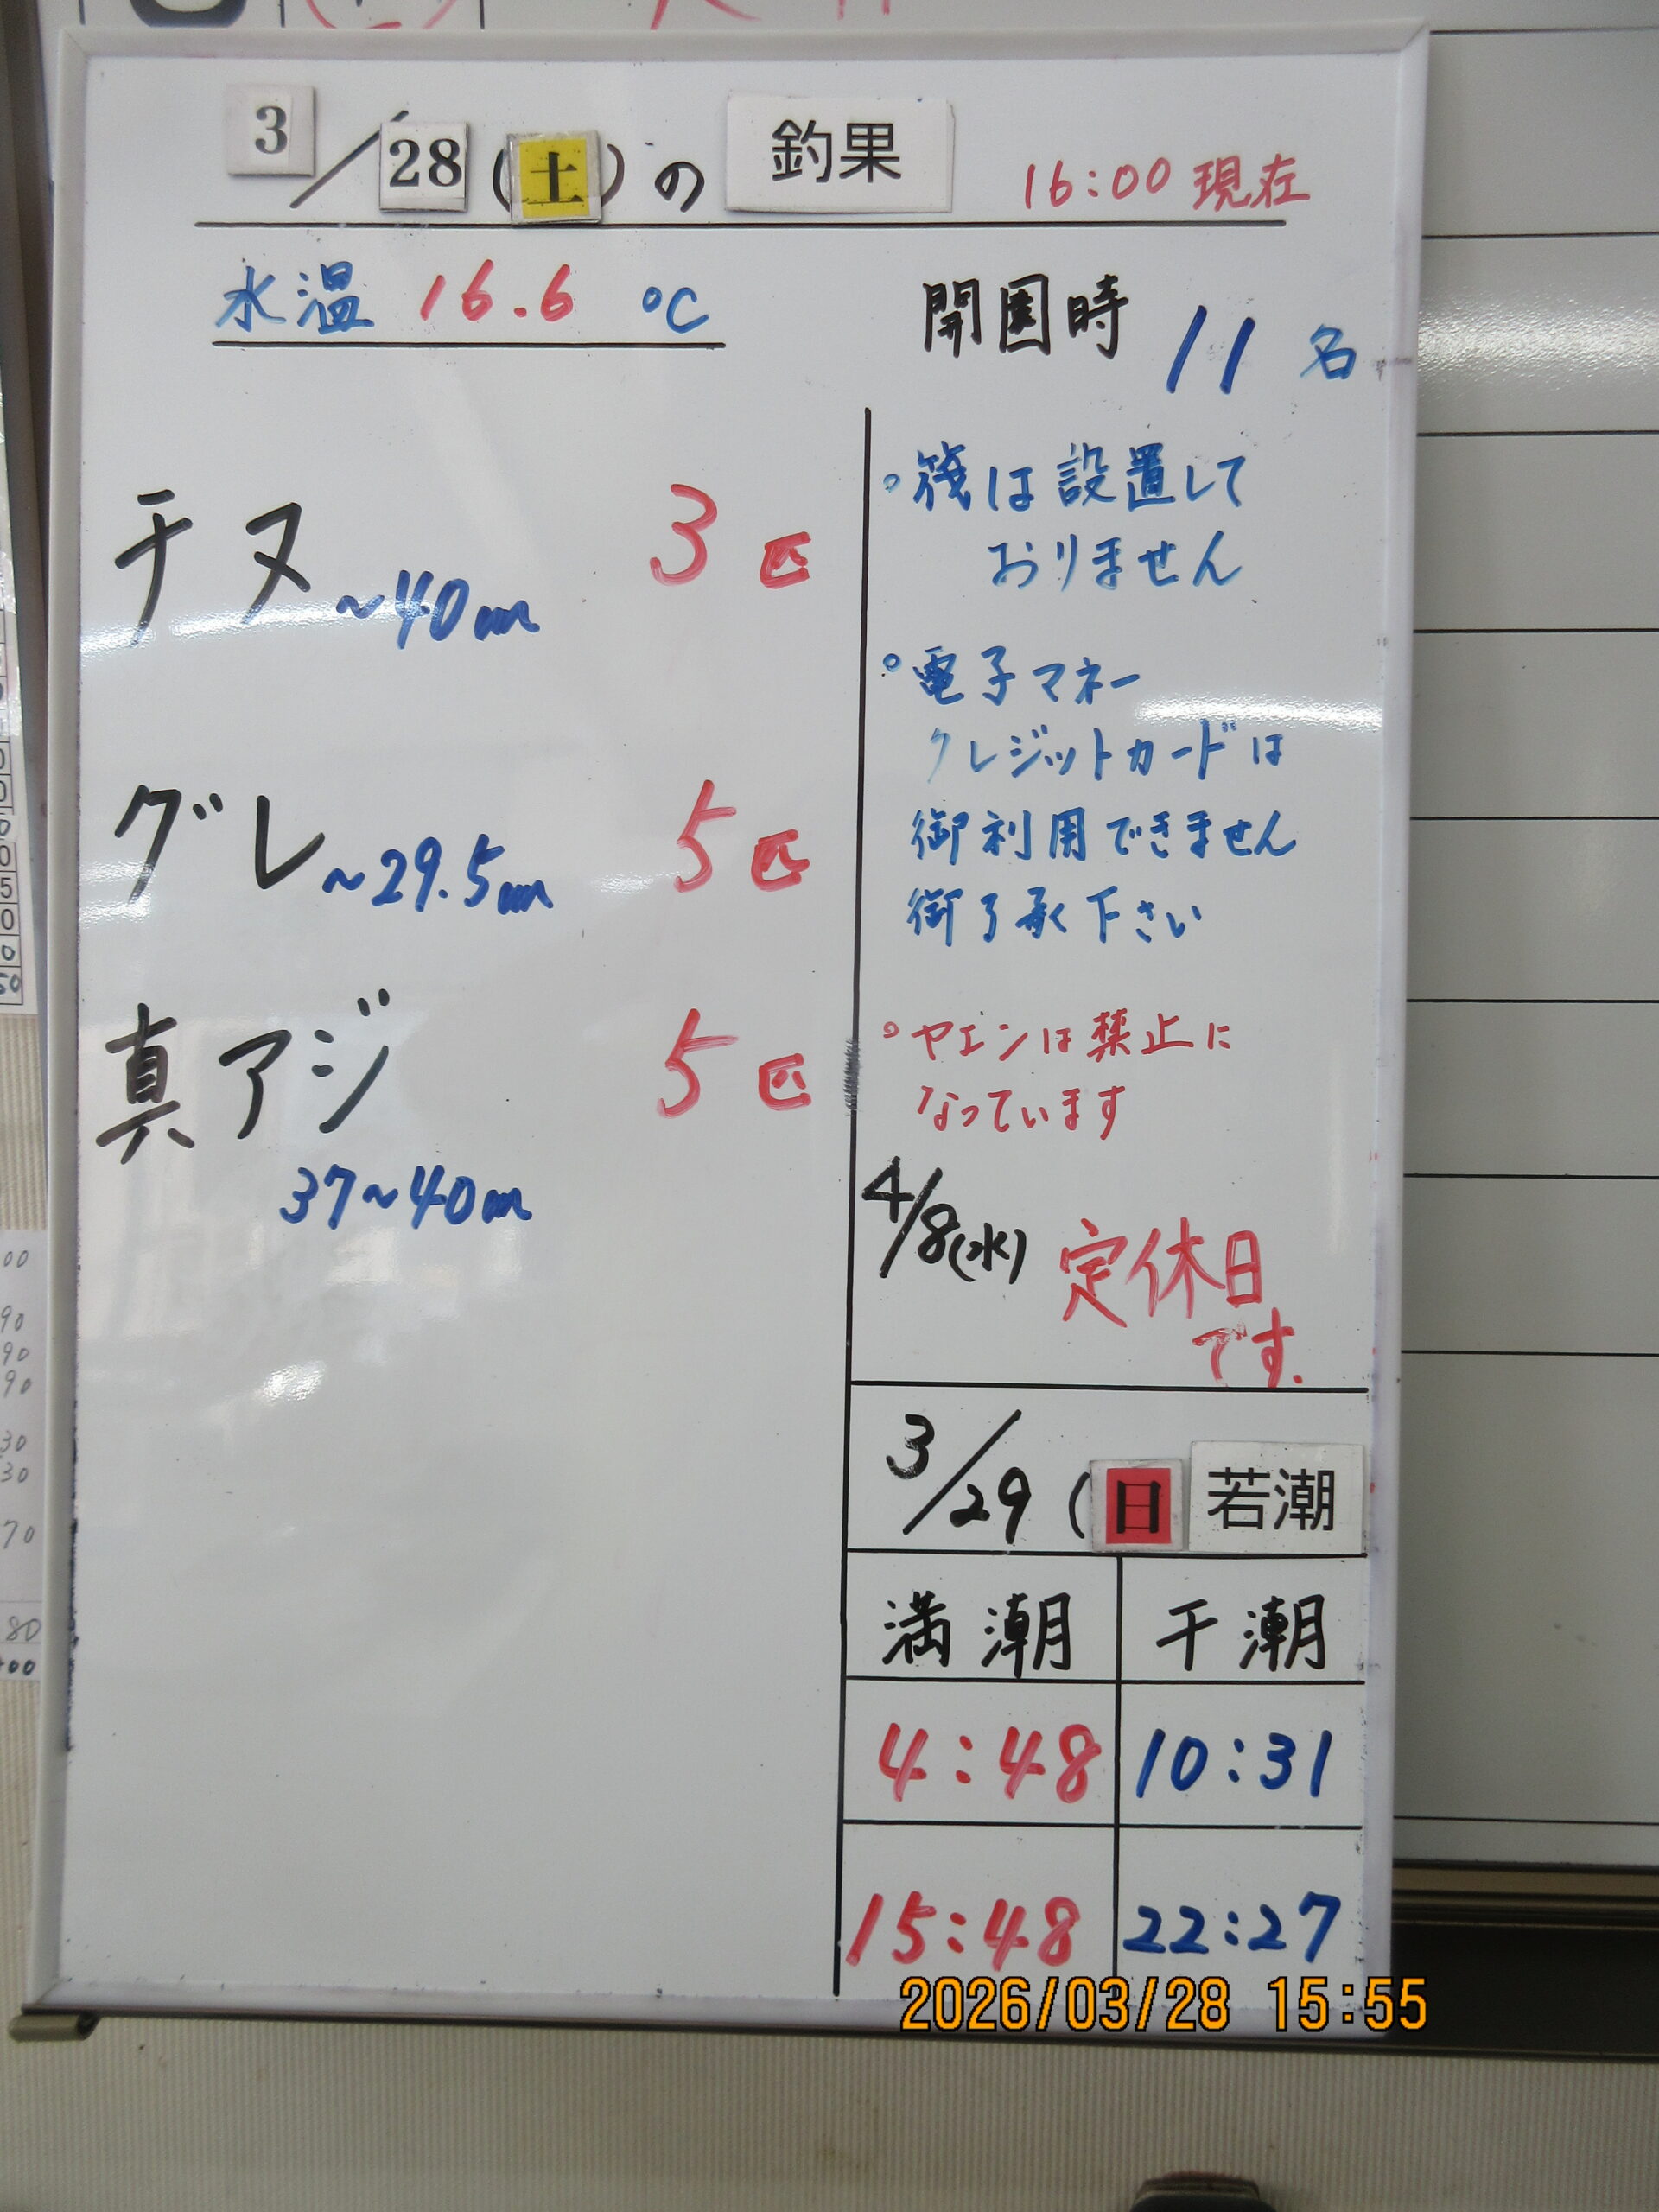 3/28(土)の 釣果 16:00現在
水温 16.6 ℃
開園時 11名
チヌ ~40cm 3匹
グレ ~29.5cm 5匹
真アジ 5匹
37~40cm
。筏は設置して
おりません
。電子マネー
クレジットカードは
御利用できません
御了承下さい
。ヤエンは禁止に
なっています
4/8(水) 定休日
です.
3/29(日 若潮
満潮 干潮
4:48 10:31
15:48 22:27
2026/03/28 15:55